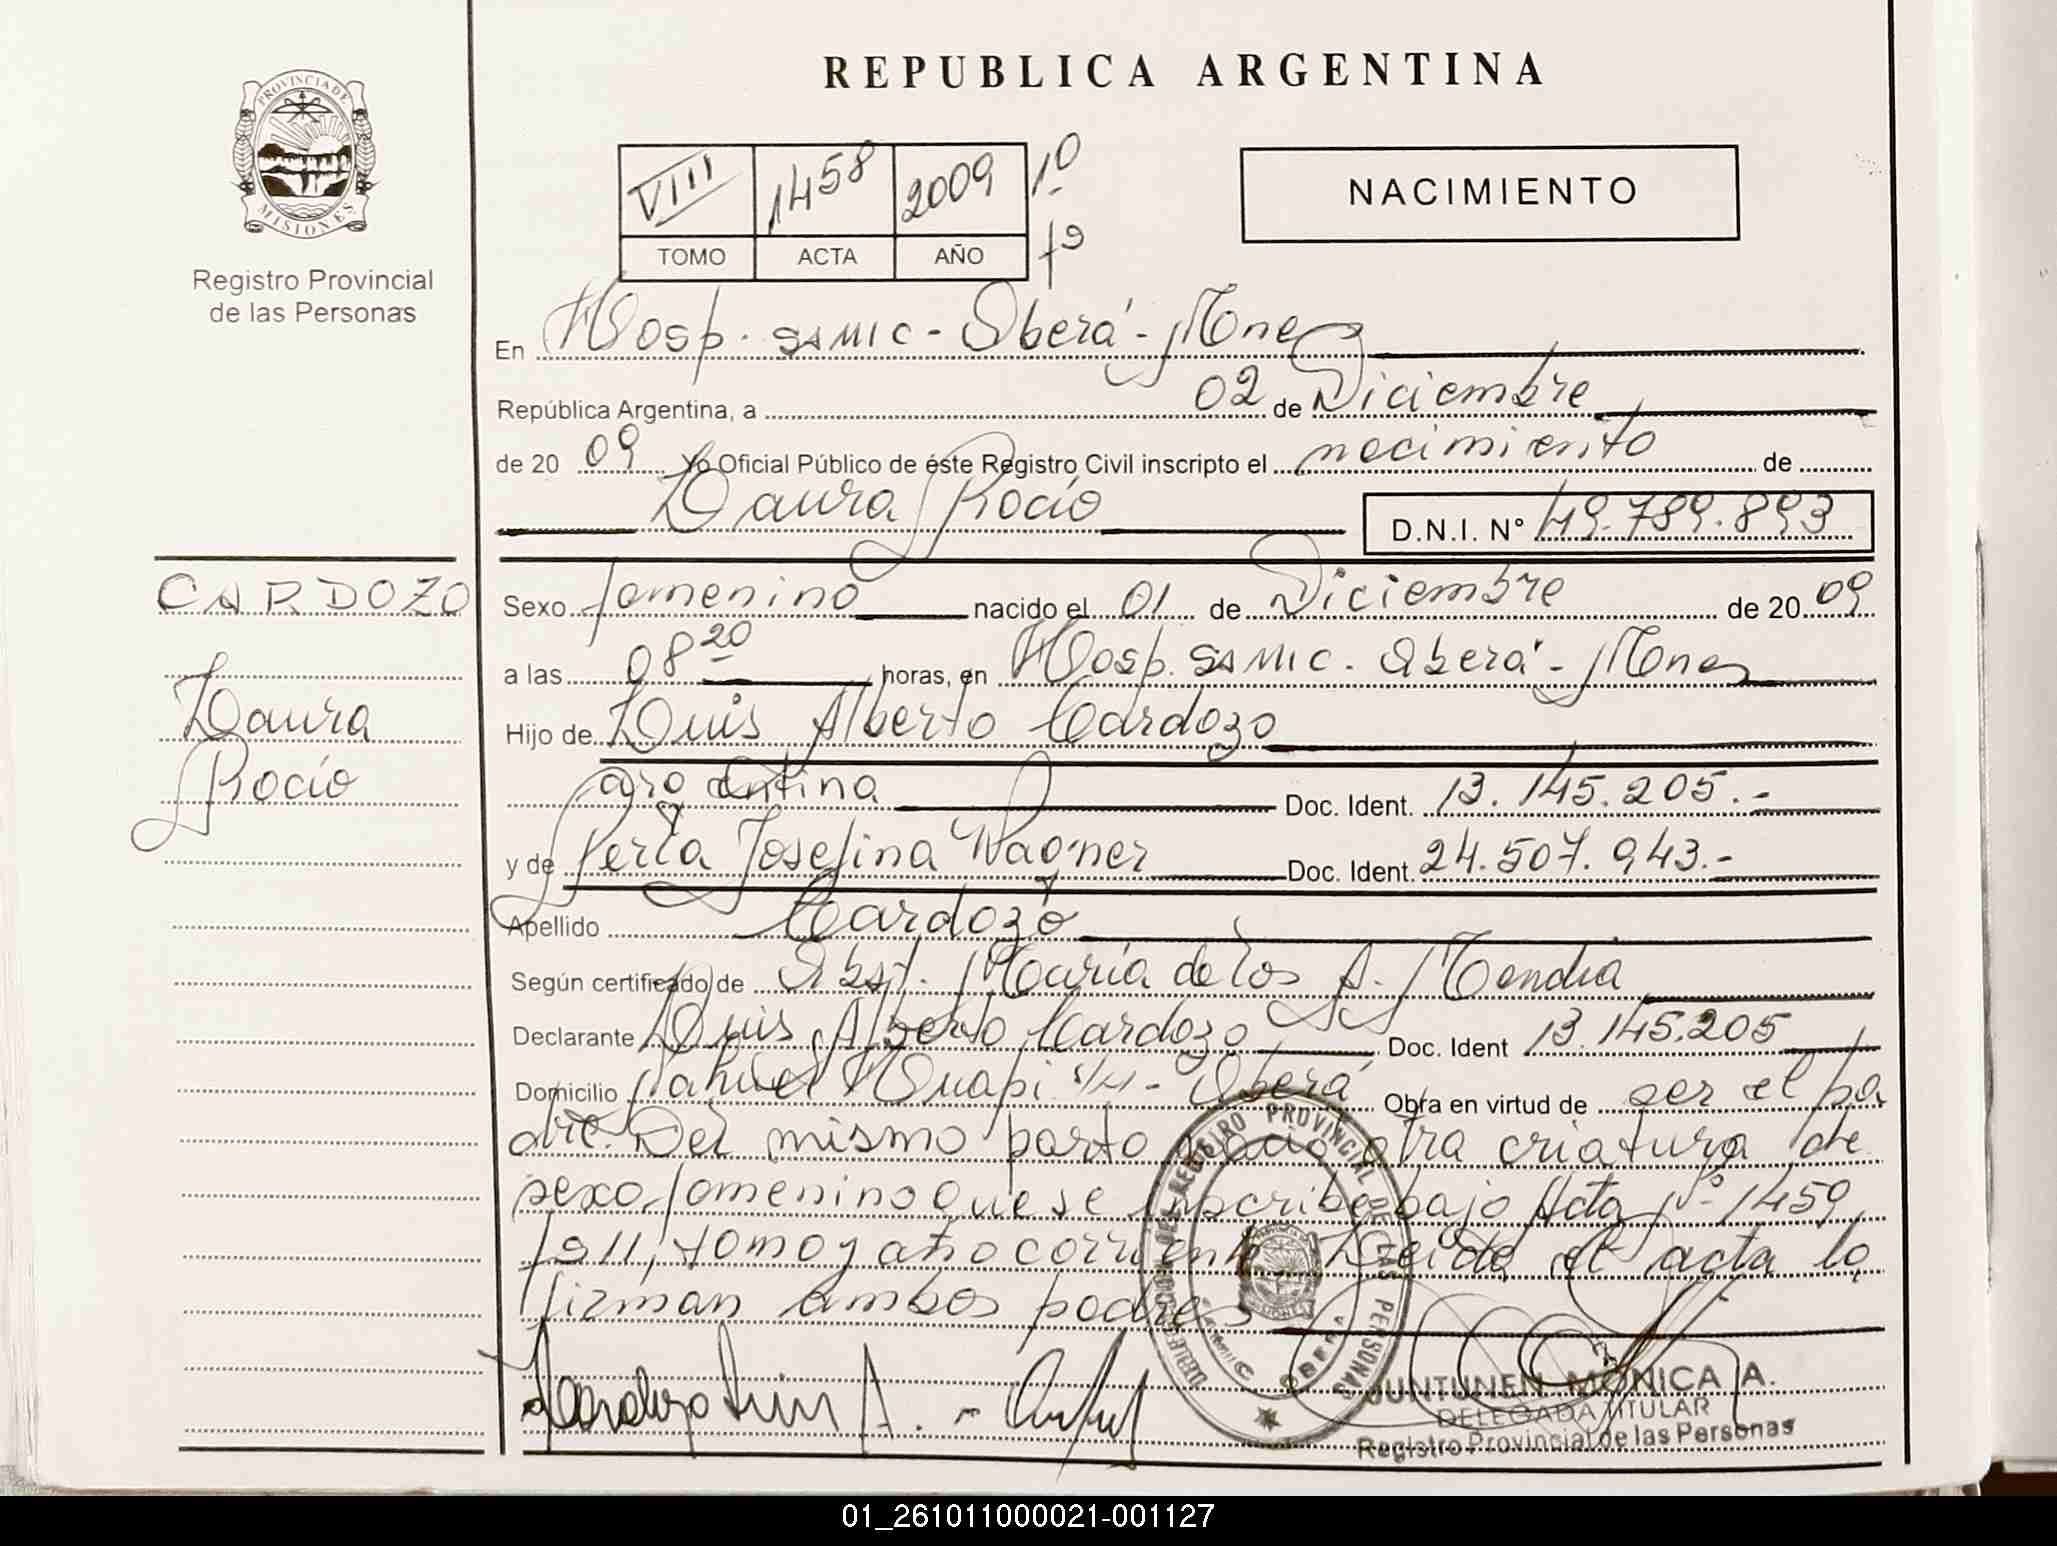 REPUBLICA ARGENTINA
PROVINCIA DE
MISIONES
Registro Provincial
de las Personas
VIII 1458 2009 10
TOMO ACTA AÑO fº
NACIMIENTO
En Hosp. SAMIC - Oberá - Mnes
República Argentina, a 02 de Diciembre
de 20 09 Yo Oficial Público de éste Registro Civil inscripto el nacimiento de
Laura Rocío D.N.I. Nº 49.789.893
CARDOZO
Laura
Rocío
Sexo femenino nacido el 01 de Diciembre de 20 09
a las 08 20 horas, en Hosp. SAMIC - Oberá - Mnes
Hijo de Luis Alberto Cardozo
argentina Doc. Ident. 13.145.205.-
y de Perla Josefina Wagner Doc. Ident. 24.507.943.-
Apellido Cardozo
Según certificado de Obst. María de los A. Mendia
Declarante Luis Alberto Cardozo Doc. Ident 13.145.205
Domicilio Nahuel Huapi s/n - Oberá Obra en virtud de ser el pa
dre. Del mismo parto nació otra criatura de
sexo femenino que se inscribe bajo Acta Nº 1459
fº 11, tomo y año corriente. Leída el acta la
firman ambos padres
Cardozo Luis A. -
JUNTUNEN MÓNICA A.
DELEGADA TITULAR
Registro Provincial de las Personas
DIRECCION DEL REGISTRO PROVINCIAL DE LAS PERSONAS
SAMIC OBERA
01_261011000021-001127